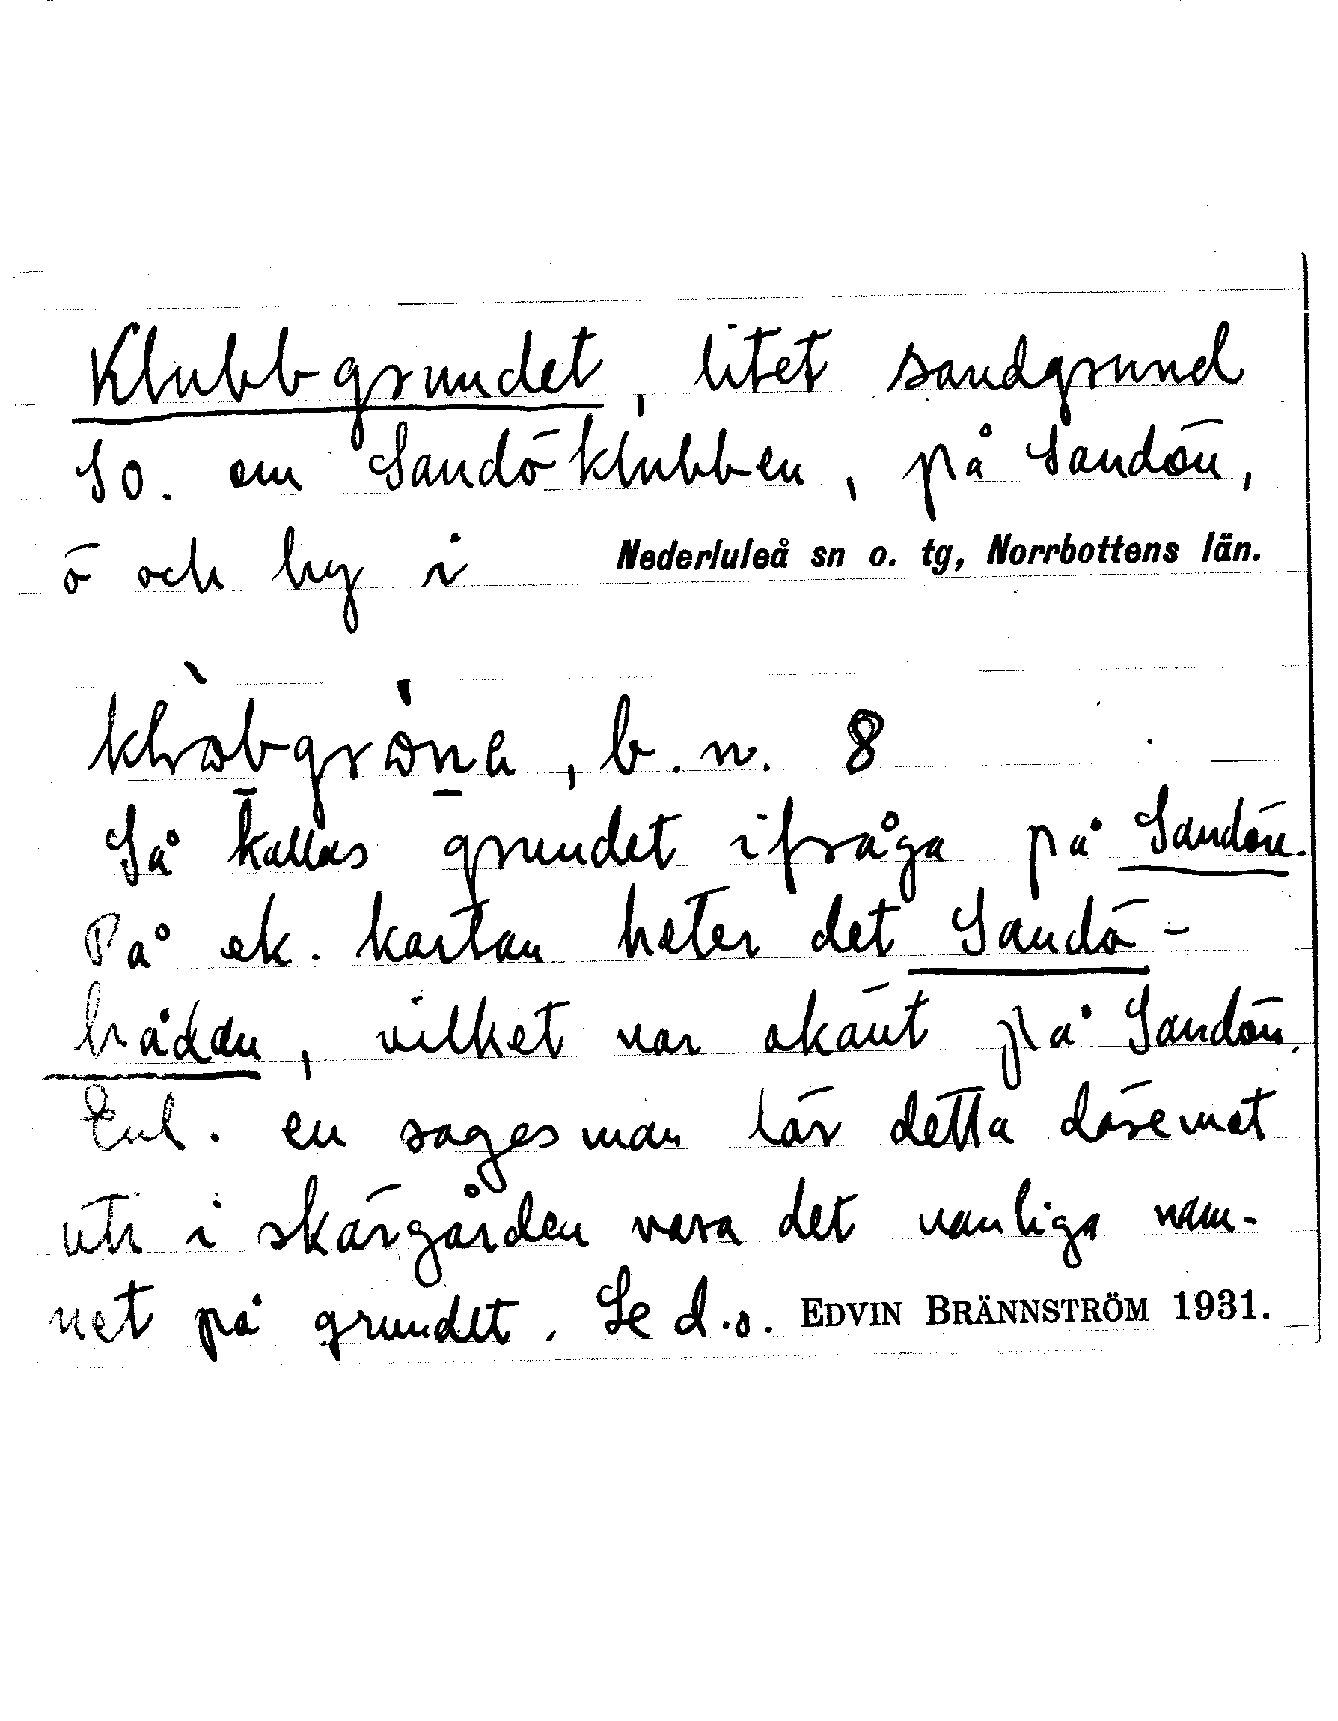 Klubbgrundet, litet sandgrund
SO. om Sandöklubben, på Sandön,
ö och by i Nederluleå sn o. tg, Norrbottens län.
b. n. 8
Så kallas grundet ifråga på Sandön.
På ek. kartan heter det Sandö-
brädan, vilket var okänt på Sandön.
Enl. en sagesman lär detta däremot
ute i skärgården vara det vanliga nam-
net på grundet. Se d.o. EDVIN BRÄNNSTRÖM 1931.